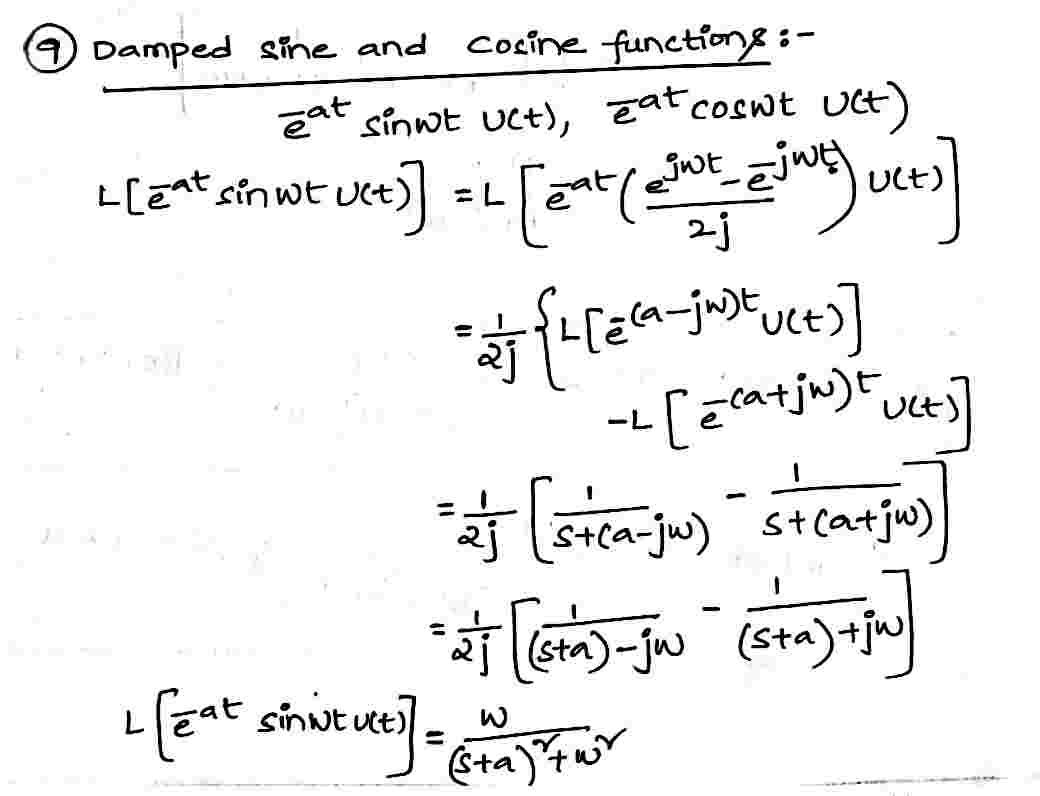 ⑨ Damped sine and cosine functions :-
e^-at sinωt U(t), e^-at cosωt U(t)
L[e^-at sinωt U(t)] = L[e^-at ((e^jωt - e^-jωt)/2j) U(t)]
= 1/2j {L[e^-(a-jω)t U(t)]
-L[e^-(a+jω)t U(t)]
= 1/2j [1/(s+(a-jω)) - 1/(s+(a+jω))]
= 1/2j [1/((s+a)-jω) - 1/((s+a)+jω)]
L[e^-at sinωt u(t)] = ω/((s+a)^2+ω^2)